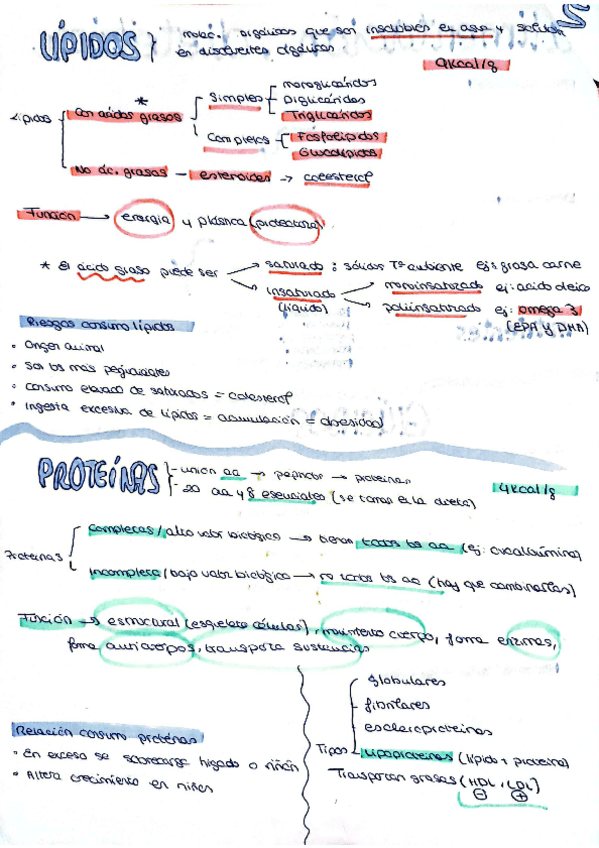 LÍPIDOS } moléc. orgánicas que son insolubles en agua y solubles
en disolventes orgánicos
9kcal/g
Lípidos
Con ácidos grasos *
Simples
monoglicéridos
Diglicéridos
Triglicéridos
Complejos
Fosfolípidos
Glucolípidos
No ác. grasos - esteroides → colesterol
Función → energía y plástica (protectora)
* el ácido graso puede ser
saturado : sólidos Tª ambiente ej: grasa carne
insaturado
(líquido)
monoinsaturado ej: acido oleico
poliinsaturado ej: omega 3
(EPA y DHA)
Riesgos consumo lípidos
• Origen animal
• Son los más perjudiciales
• Consumo elevado de saturados = colesterol
• Ingesta excesiva de lípidos = acumulación = obesidad
PROTEÍNAS
- unión aa → péptidos → proteínas
- 20 aa y 8 esenciales (se toman en la dieta)
4kcal/g
Proteínas
Completas / alto valor biológico → tienen todos los aa (ej: ovoalbúmina)
Incompleta / bajo valor biológico → no todos los aa (hay que combinarlas)
Función → estructural (esqueleto células), movimiento cuerpo, forma enzimas,
forma anticuerpos, transporta sustancias
Relación consumo proteínas
• En exceso se sobrecarga hígado o riñón
• Altera crecimiento en niños
Tipos
globulares
fibrilares
escleroproteinas
Lipoproteínas (lípido + proteína)
Transportan grasas (HDL, LDL)
⊖ ⊕